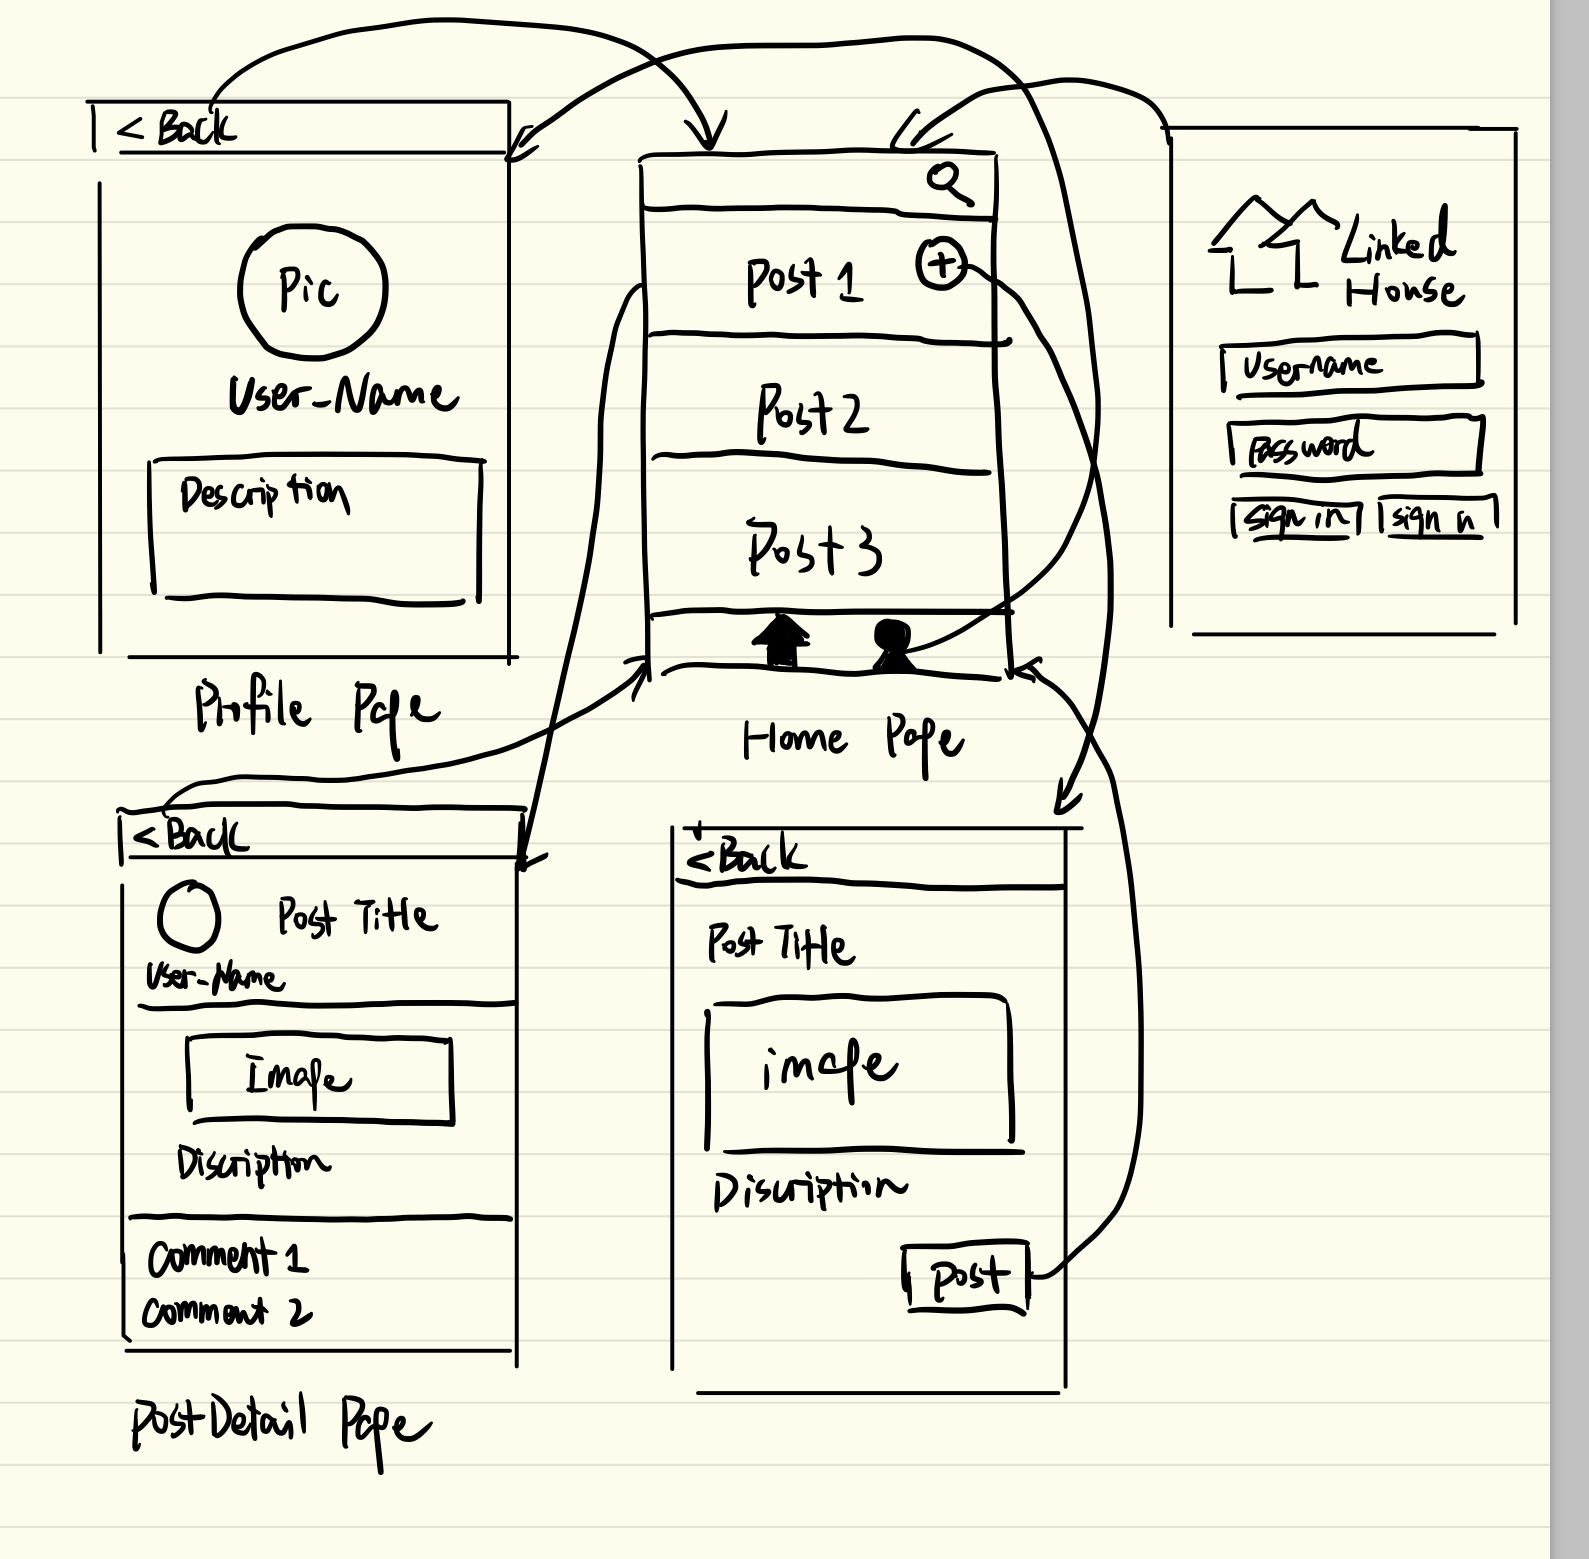 < Back
Pic
User-Name
Description
Profile Page
Post 1
Post 2
Post 3
Home Page
Linked
House
Username
Password
sign in
sign n
< Back
Post Title
User-Name
Image
Discription
Comment 1
Comment 2
PostDetail Page
< Back
Post Title
image
Discription
post